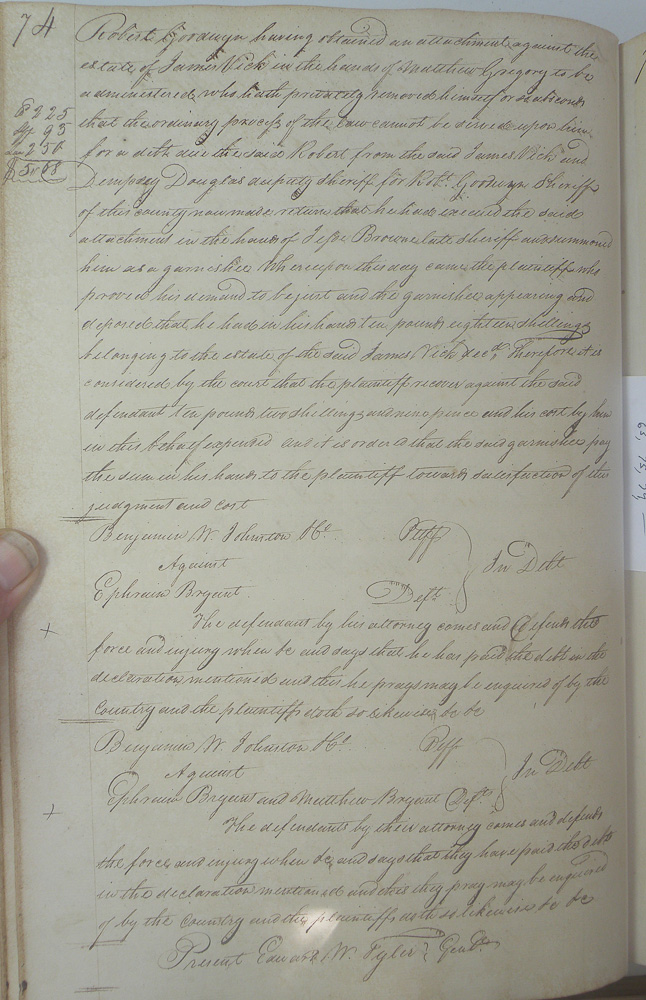 74
Robert Goodwyn having obtained an attachment against the
estate of James Vick in the hands of Matthew Gregory to be
administered, who hath privately removed himself or absconds
that the ordinary process of the law cannot be served upon him
for a debt due the said Robert from the said James Vick and
Dempsey Douglas deputy sheriff for Robt. Goodwyn Sheriff
of this county now made return that he had executed the said
attachment in the hands of Jesse Browne late sheriff and summoned
him as a garnishee Whereupon this day came the plaintiff who
proved his demand to be just and the garnishee appearing and
deposed that he had in his hands ten pounds eighteen shillings
belonging to the estate of the said James Vick decd. Therefore it is
considered by the court that the plaintiff recover against the said
defendant ten pounds two shillings and nine pence and his cost by him
in this behalf expended and it is ordered that the said garnishee pay
the sum in his hands to the plaintiff towards satisfaction of this
judgment and cost
Benjamin W. Johnston &c. Pltff
Against
Ephraim Bryant. Deft.
In Debt
The defendant by his attorney comes and defends the
force and injury when &c and says that he has paid the debt in the
declaration mentioned and this he prays may be enquired of by the
Country and the plaintiffs doth so likewise &c &c
Benjamin W. Johnston &c. Pltff
Against
Ephraim Bryant and Matthew Bryant Defts.
In Debt
The defendants by their attorney comes and defends
the force and injury when &c, and says that they have paid the debt
in the declaration mentioned and this they pray may be enquired
of by the Country and the plaintiffs doth so likewise &c &c
Present Edward W. Tyler Gent.